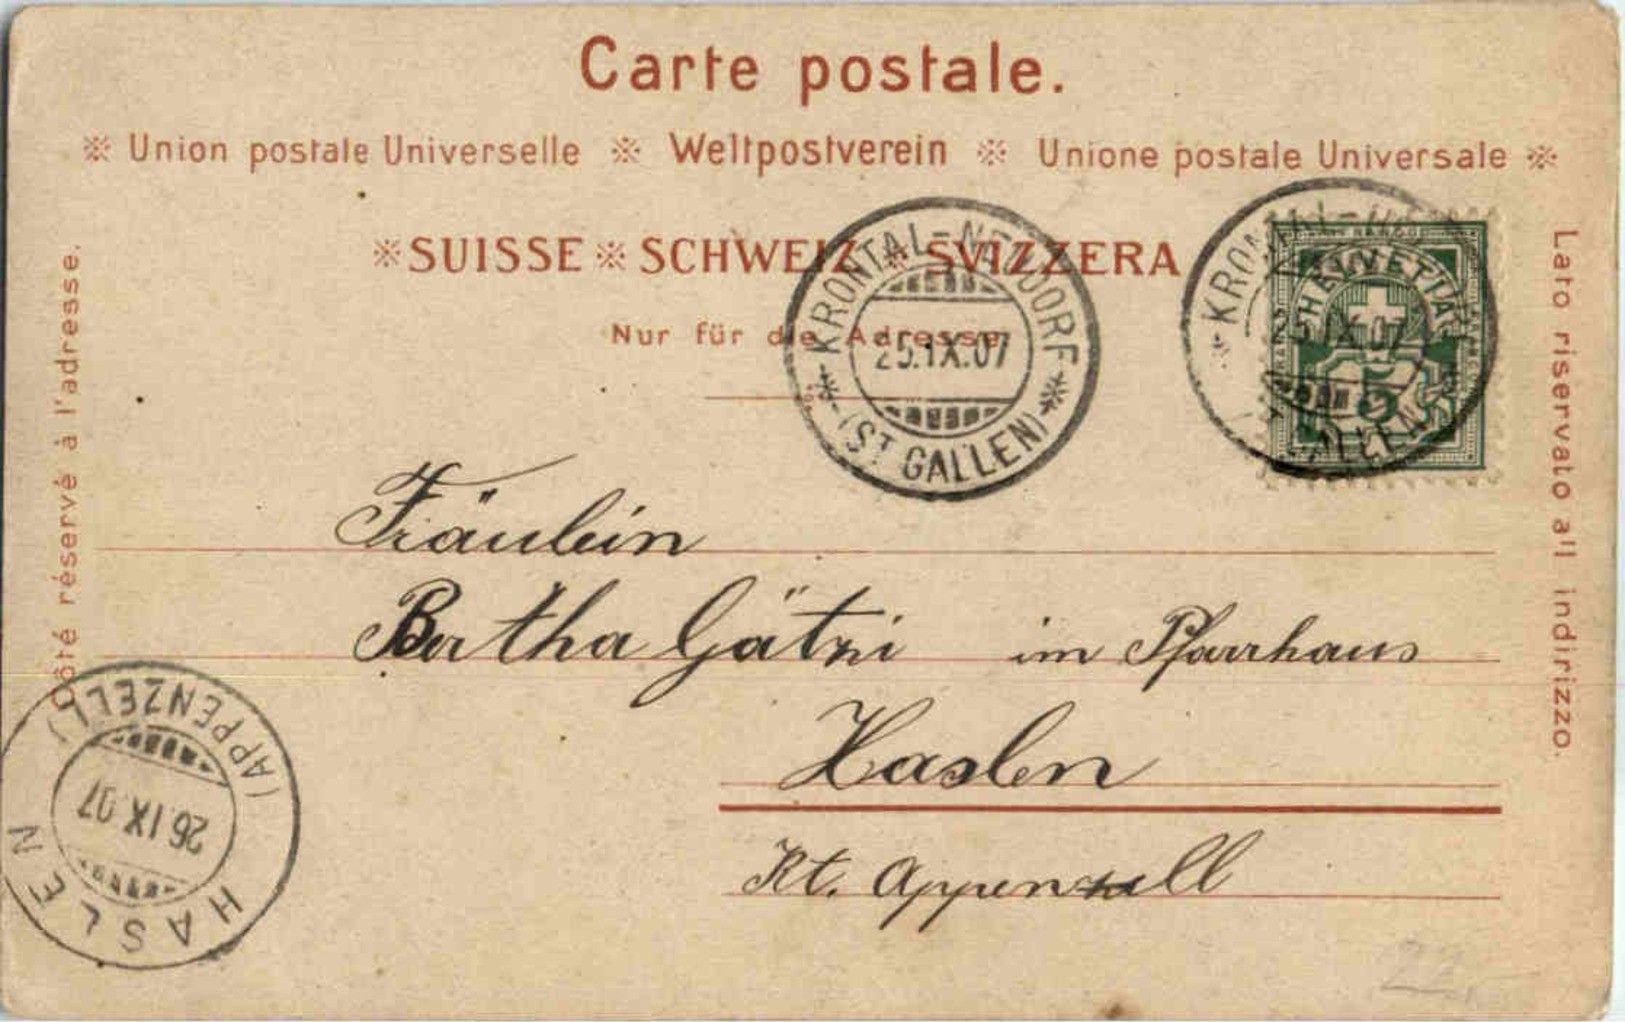 Carte postale.
※ Union postale Universelle ※ Weltpostverein ※ Unione postale Universale ※
※ SUISSE ※ SCHWEIZ ※ SVIZZERA
Nur für die Adresse
Côté réservé à l'adresse.
Lato riservato all indirizzo.
KRONTAL-NEUDORF
25.IX.07
(ST GALLEN)
KRONTAL-
HELVETIA
5.IX.07
5
GALLEN
Fräulein
Bertha Gätzi im Pfarrhaus
Haslen
Kt. Appenzell
(APPENZELL)
26.IX.07
HASLEN
22.